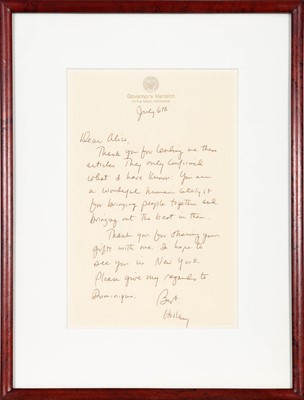 Governor's Mansion
Little Rock, Arkansas
July 6th
Dear Alice,
Thank you for sending me these
articles. They only confirmed
what I have known. You are
a wonderful human catalyst
for bringing people together and
bringing out the best in them.
Thank you for sharing your
gifts with me. I hope to
see you in New York.
Please give my regards to
Dominique.
Best
Hillary